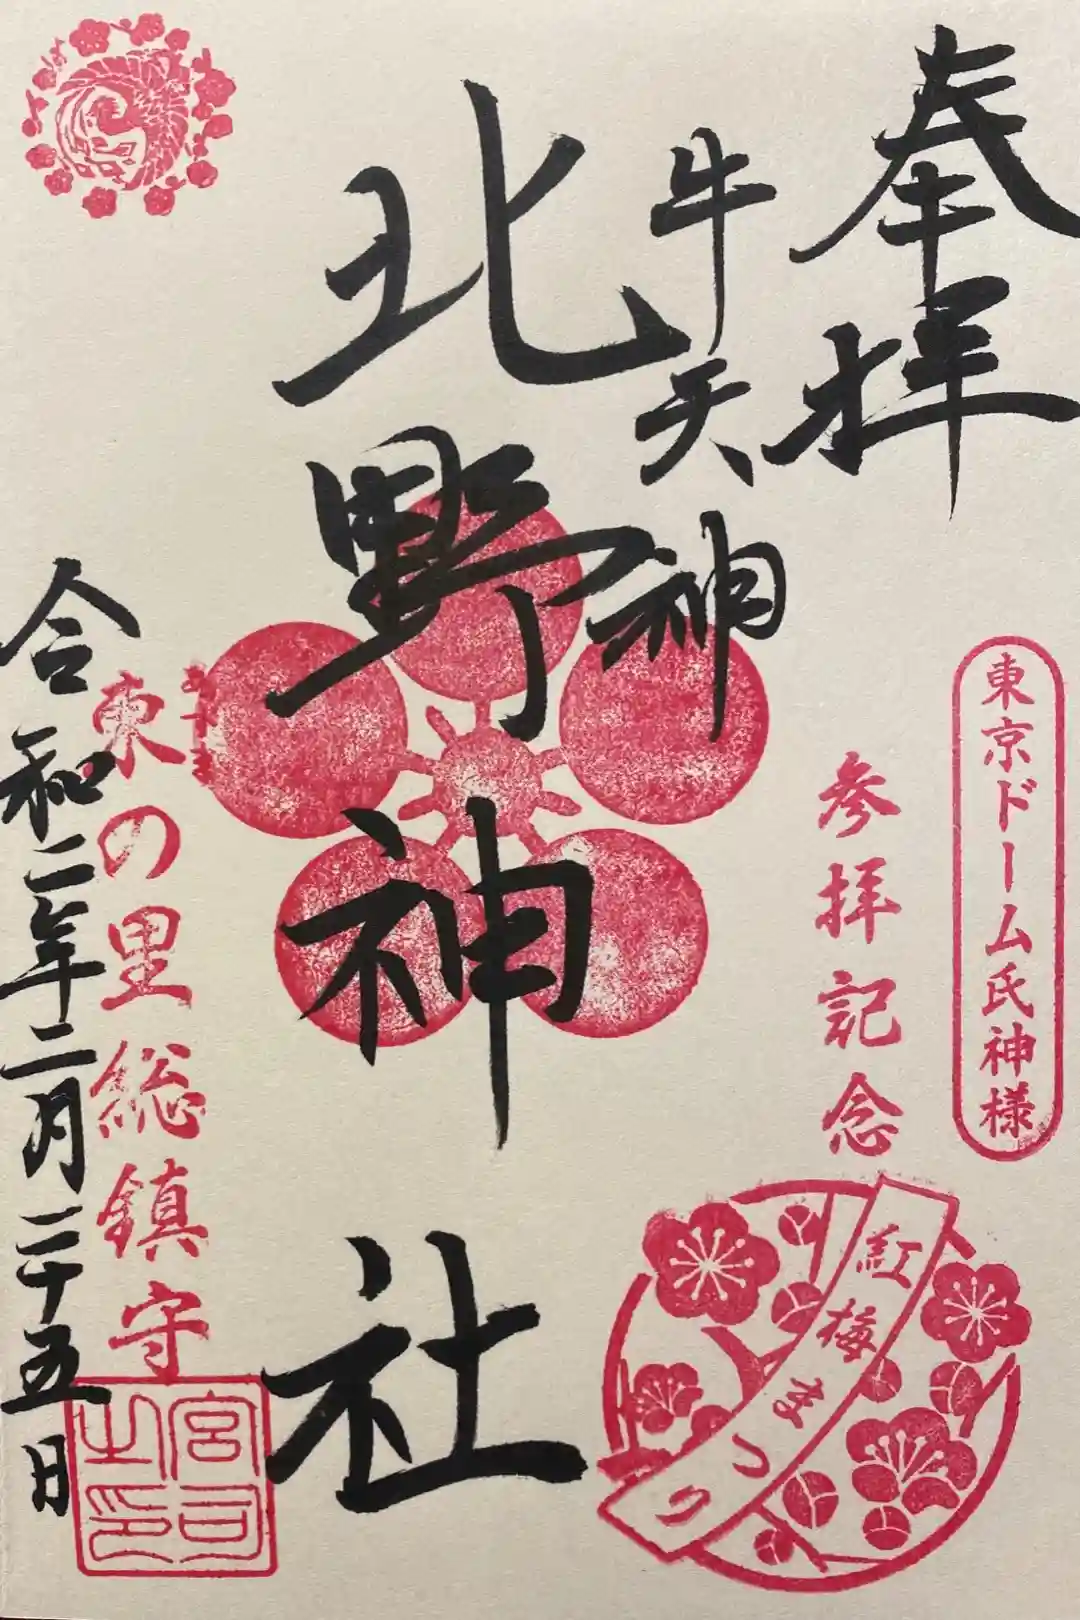 奉拝
東京ドーム氏神様
参拝記念
紅梅まつり
牛天神
北野神社
東の里総鎮守
令和二年二月二十五日
宮司之印